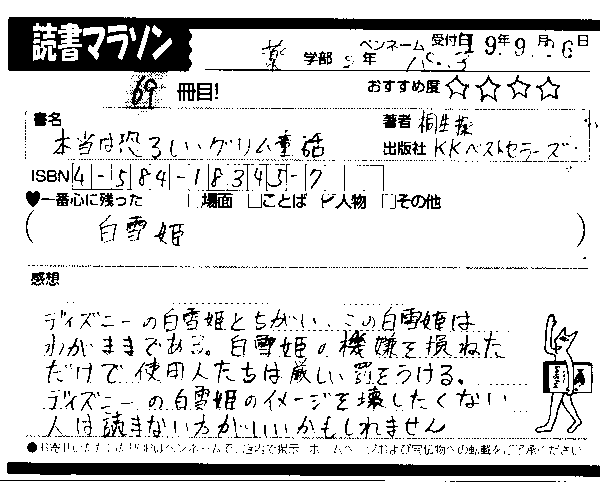 読書マラソン
薬 学部 年 ペンネーム 受付日 19年9月26日
69 冊目! おすすめ度 ☆☆☆☆
書名 著者 桐生操
本当は恐ろしいグリム童話 出版社 KKベストセラーズ
ISBN 4-1584-18345-7
♥一番心に残った □場面 □ことば ☑人物 □その他
( 白雪姫 )
感想
ディズニーの白雪姫とちがい、この白雪姫は
わがままである。白雪姫の機嫌を損ねた
だけで使用人たちは厳しい罰をうける。
ディズニーの白雪姫のイメージを壊したくない
人は読まない方がいいかもしれません
ペンネームで、店内で掲示・ホームページおよび宣伝物への転載をご了承ください